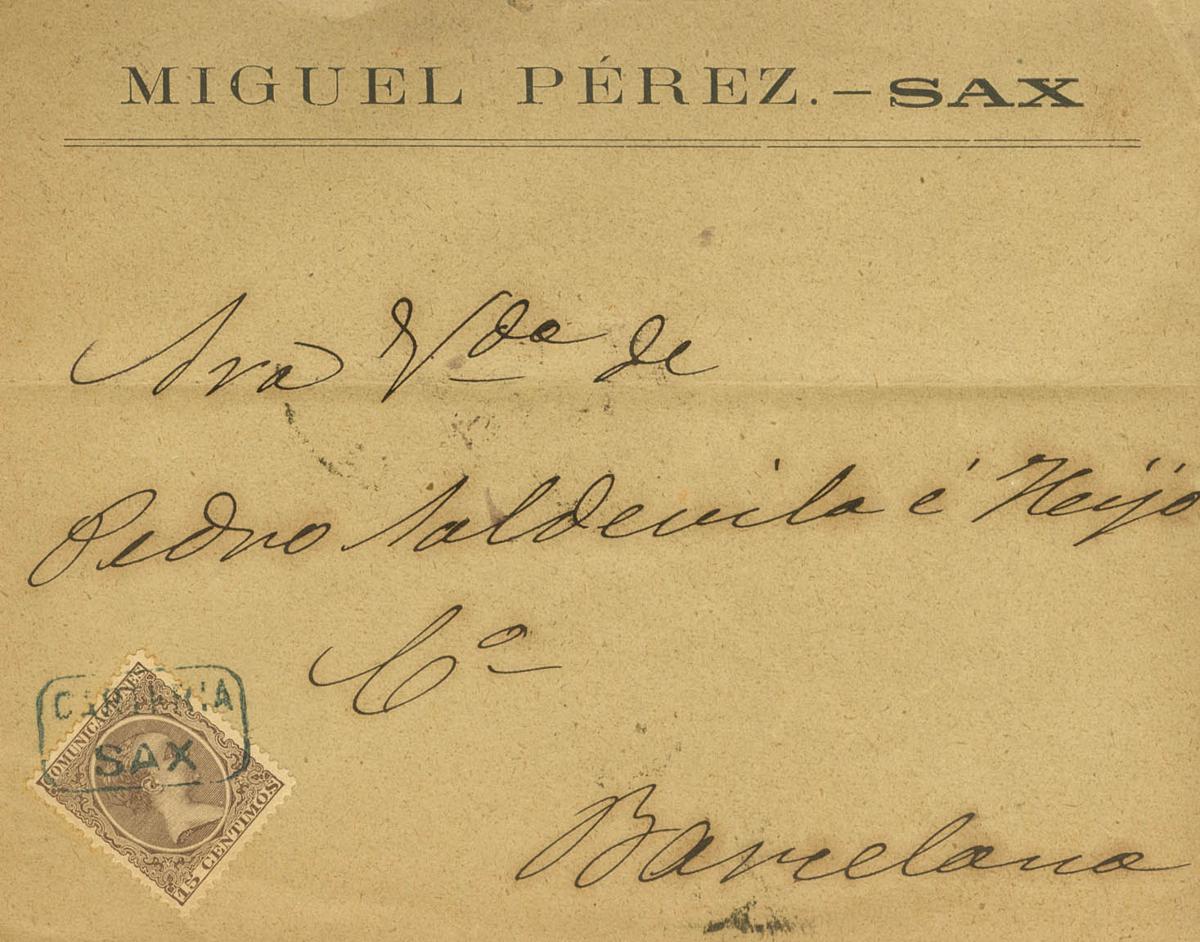 MIGUEL PÉREZ.–SAX
Sra Vda de
Pedro Saldevila é Heijo
Cª
Barcelona
CARTERIA
SAX
COMUNICACIONES
15 CENTIMOS